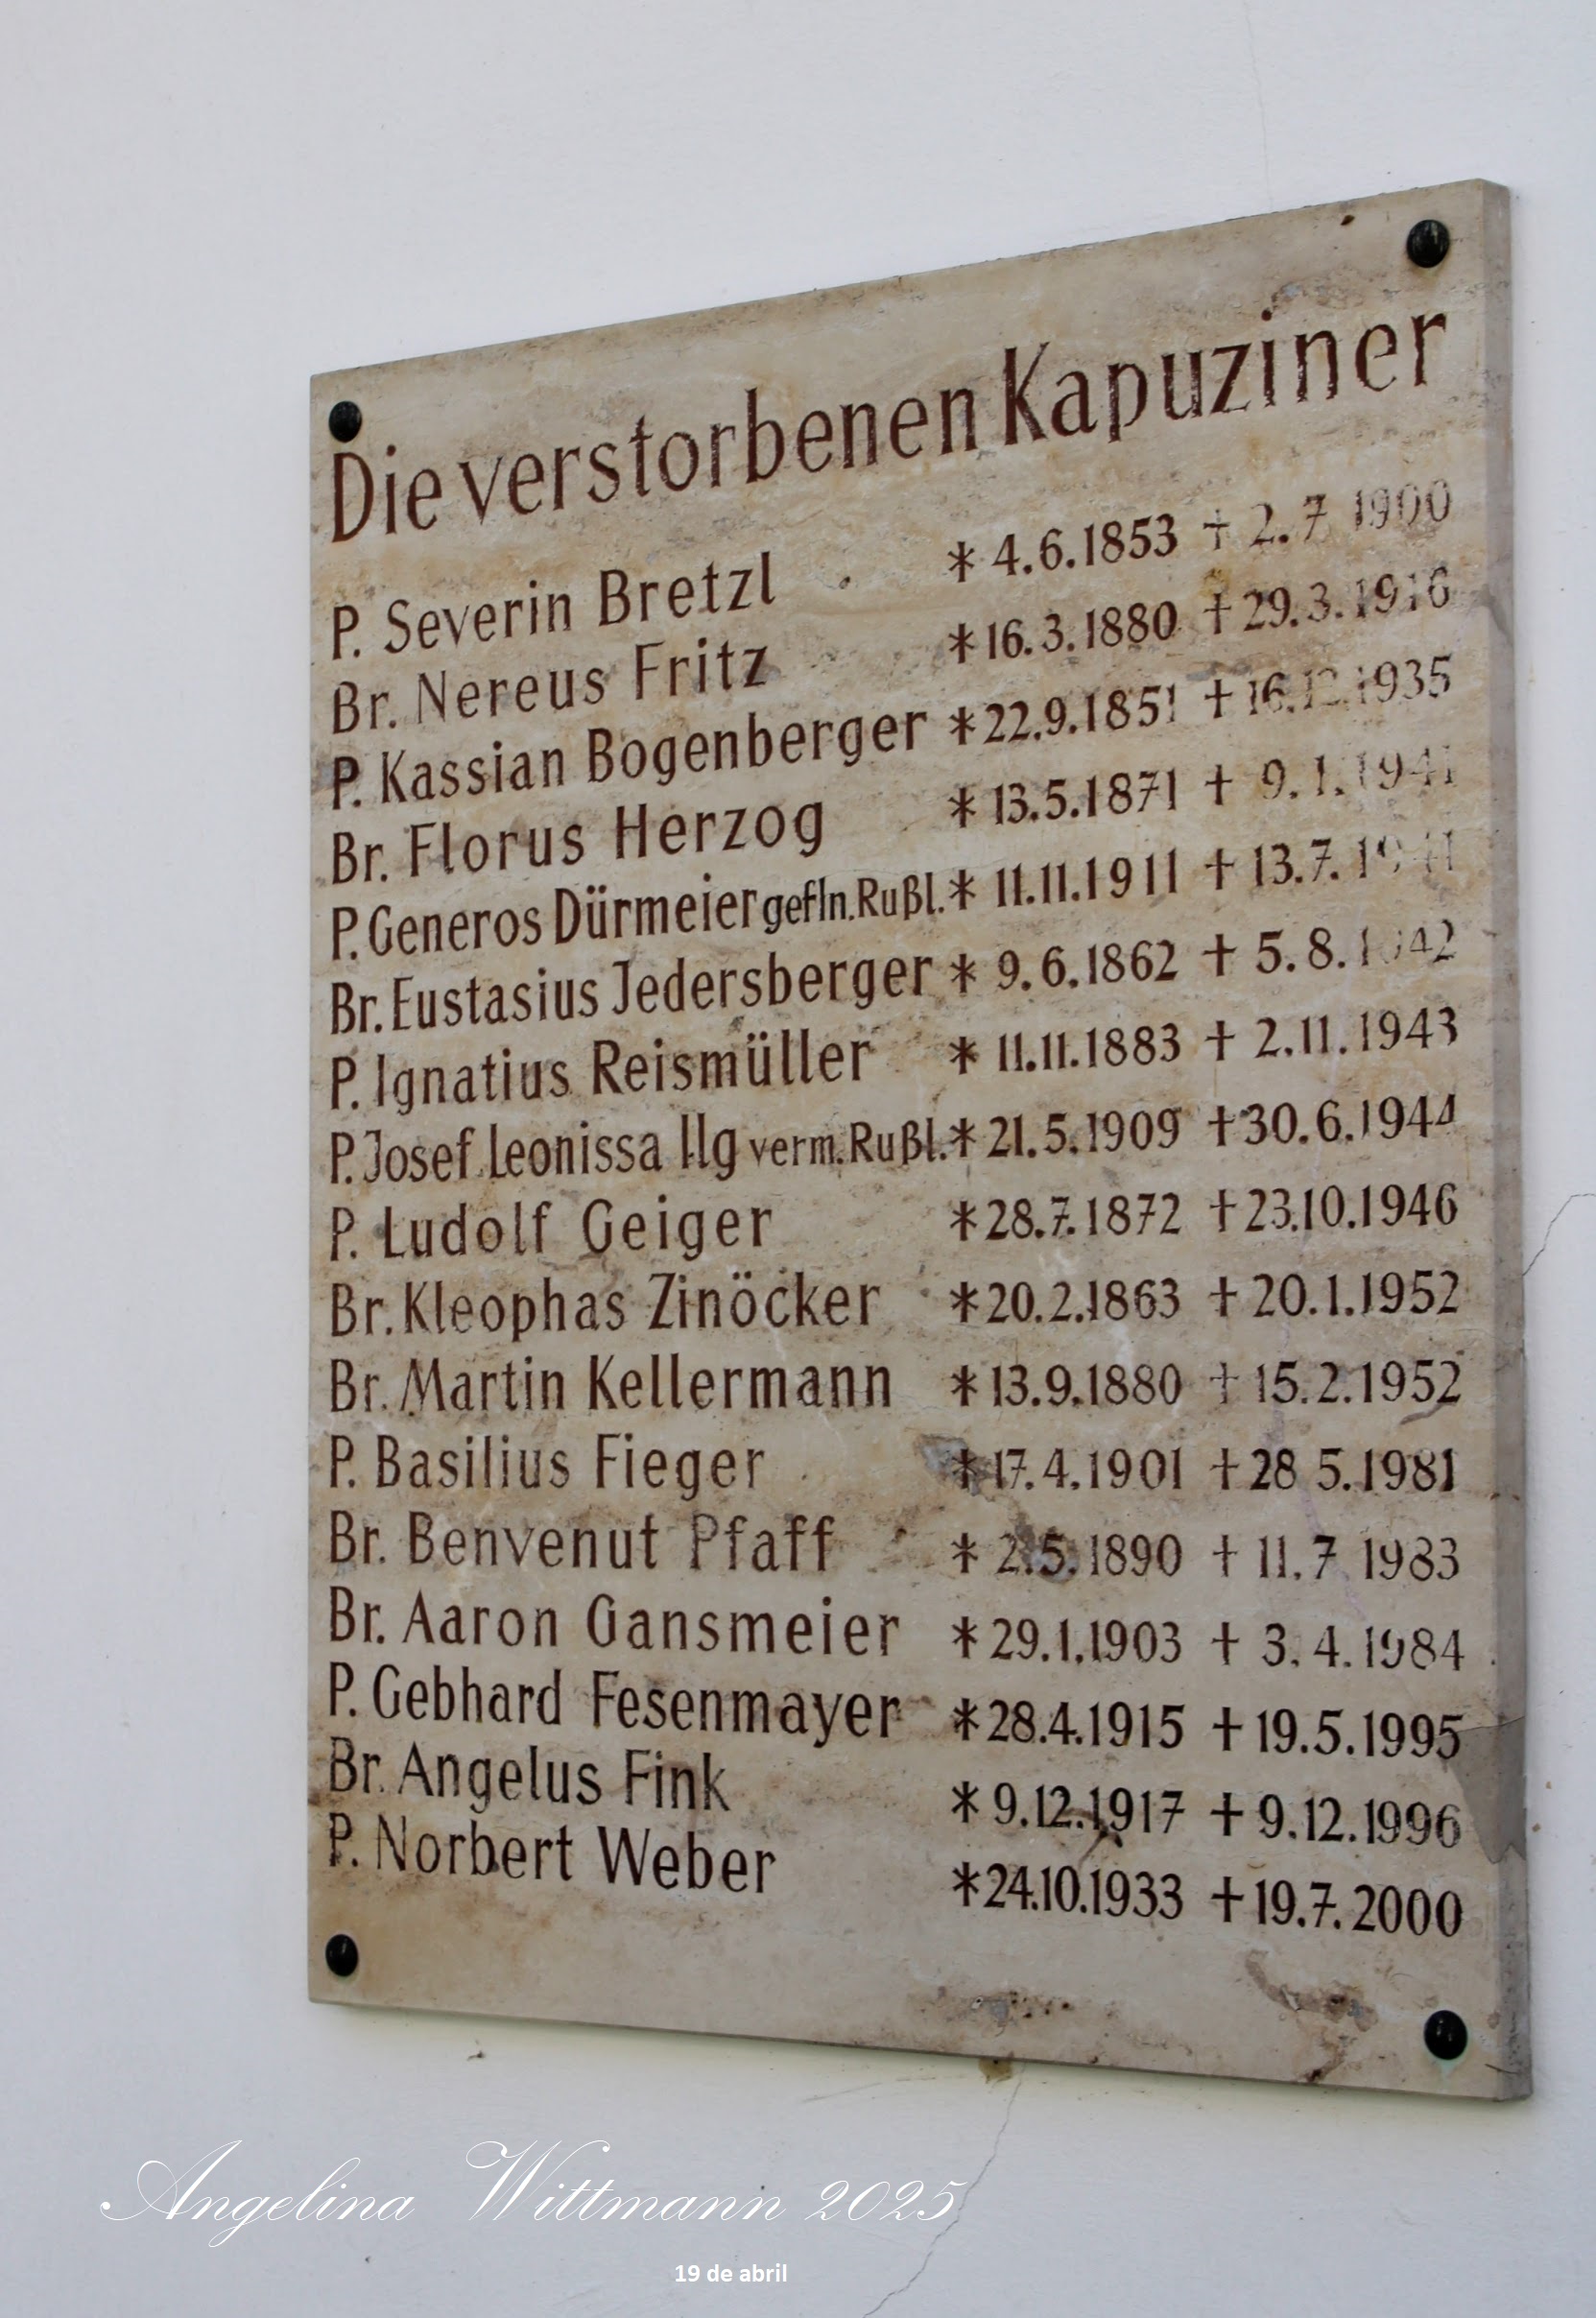 Die verstorbenen Kapuziner
P. Severin Bretzl * 4.6.1853 † 2.7 1900
Br. Nereus Fritz * 16.3.1880 † 29.3.1916
P. Kassian Bogenberger * 22.9.1851 † 16.12.1935
Br. Florus Herzog * 13.5.1871 † 9.1.1941
P. Generos Dürmeier gef. In. Rußl. * 11.11.1911 † 13.7.1941
Br. Eustasius Jedersberger * 9.6.1862 † 5.8.1942
P. Ignatius Reismüller * 11.11.1883 † 2.11.1943
P. Josef Leonissa Ilg verm. Rußl. * 21.5.1909 † 30.6.1944
P. Ludolf Geiger * 28.7.1872 † 23.10.1946
Br. Kleophas Zinöcker * 20.2.1863 † 20.1.1952
Br. Martin Kellermann * 13.9.1880 † 15.2.1952
P. Basilius Fieger * 17.4.1901 † 28 5.1981
Br. Benvenut Pfaff * 2.5.1890 † 11.7 1983
Br. Aaron Gansmeier * 29.1.1903 † 3.4.1984
P. Gebhard Fesenmayer * 28.4.1915 † 19.5.1995
Br. Angelus Fink * 9.12.1917 † 9.12.1996
P. Norbert Weber * 24.10.1933 † 19.7.2000
Angelina Wittmann 2025
19 de abril